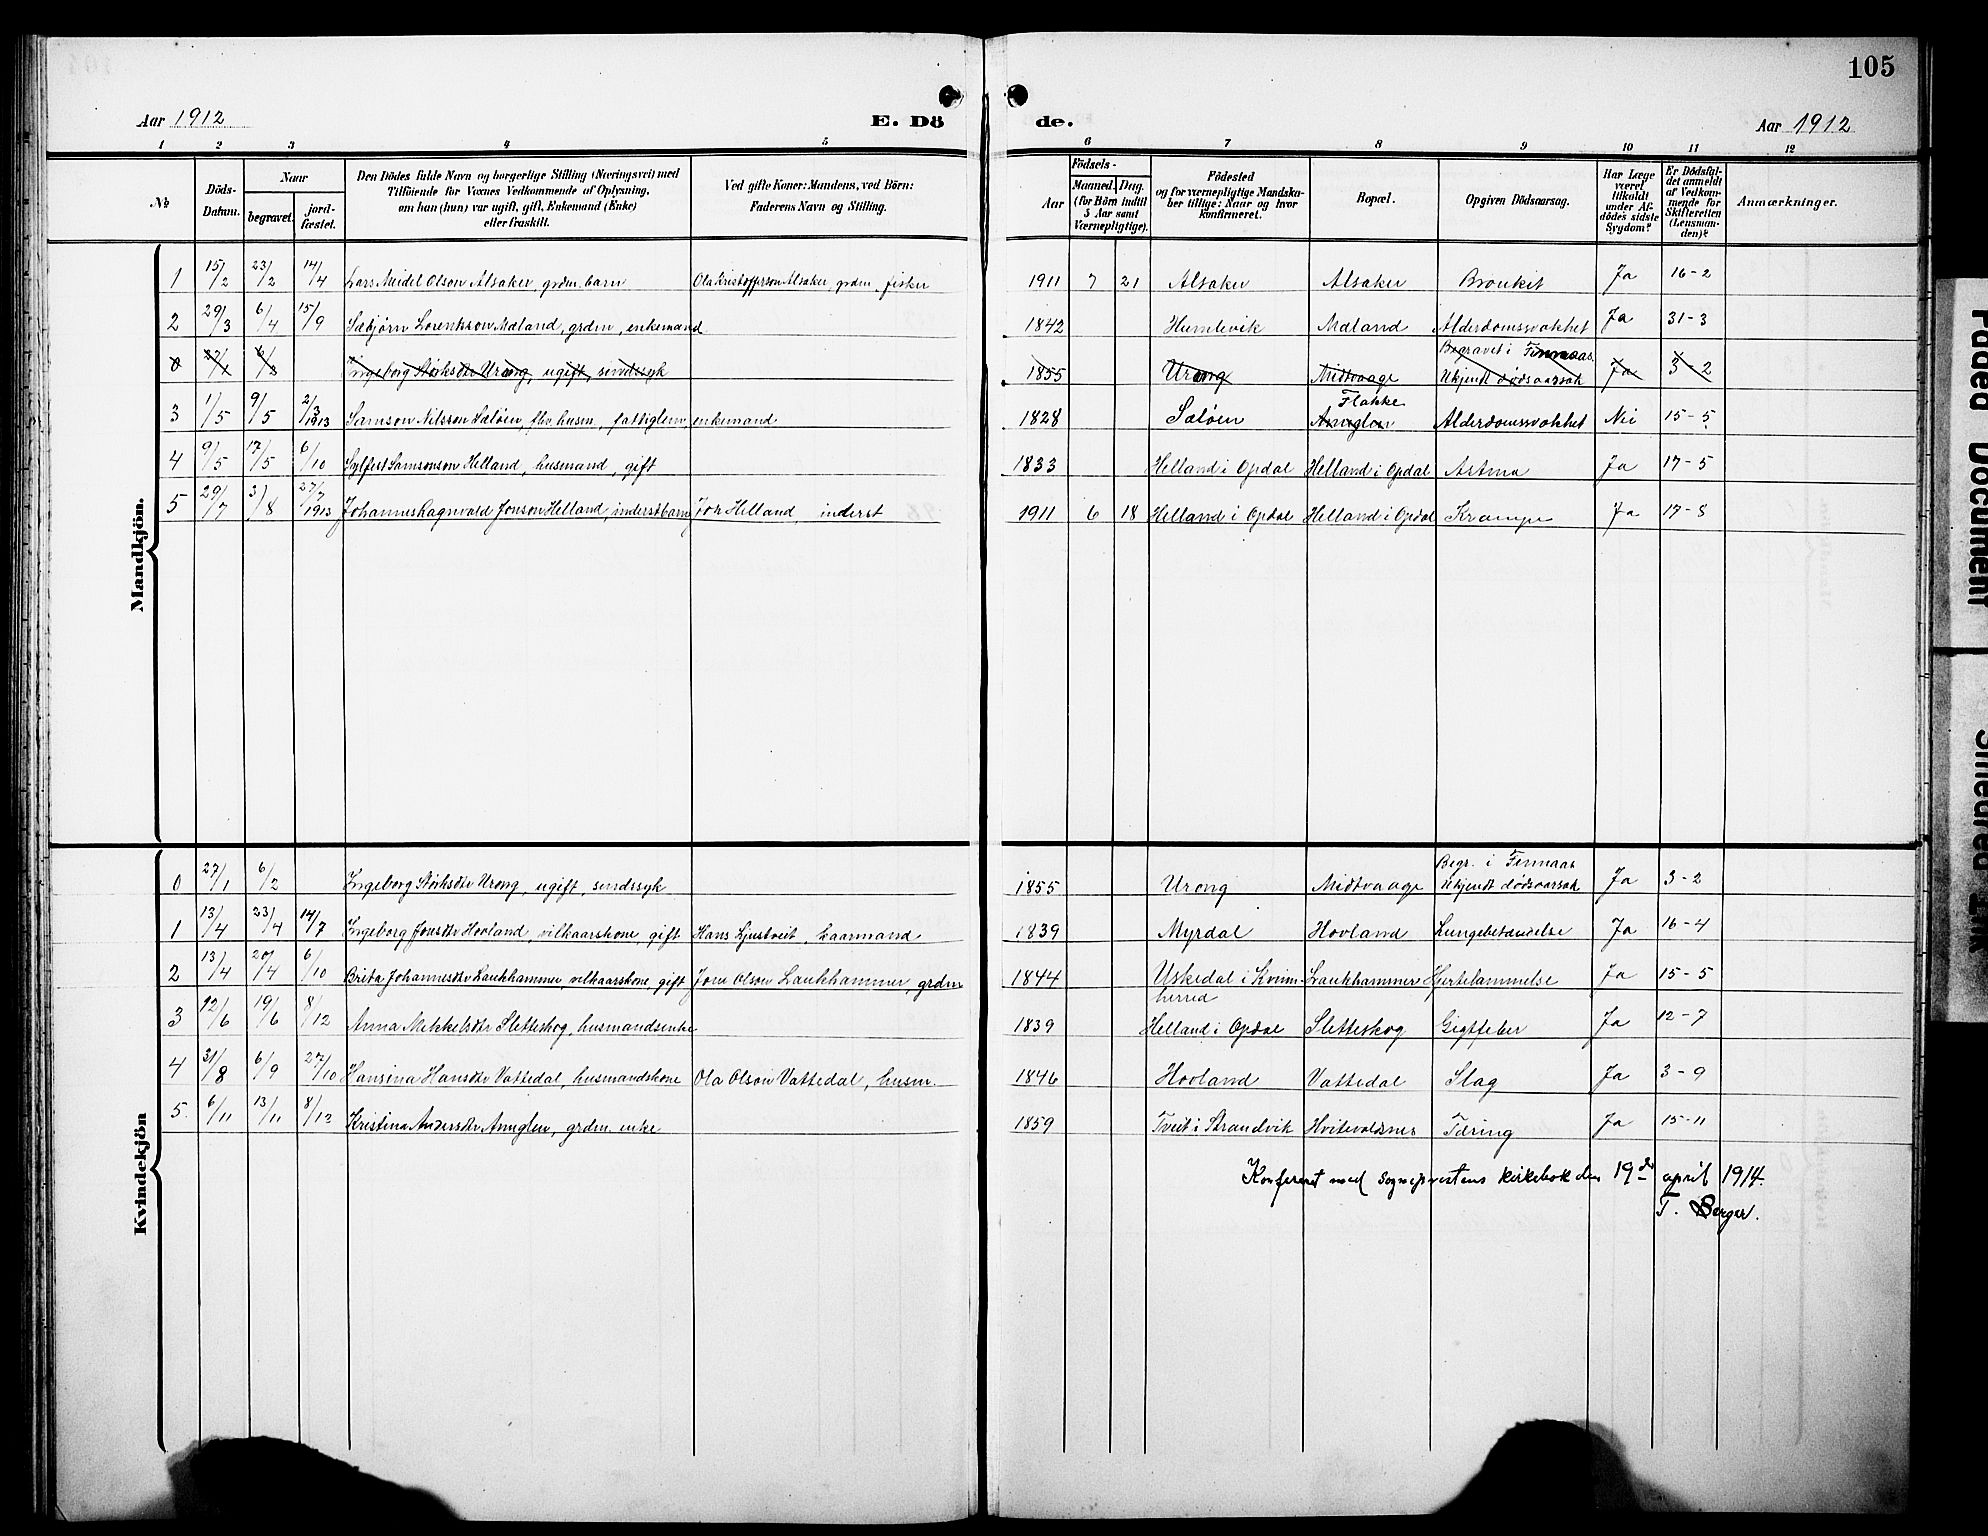 105
Aar 1912 E. Dö de. Aar 1912
1 2 3 4 5 6 7 8 9 10 11 12
№
Döds-Datum.
Naar
begravet. jord-fæstet.
Den Dödes fulde Navn og borgerlige Stilling (Næringsvei) med
Tilföiende for Voxnes Vedkommende af Oplysning,
om han (hun) var ugift, gift, Enkemand (Enke)
eller fraskilt.
Ved gifte Koner: Mandens, ved Börn:
Faderens Navn og Stilling.
Födsels-
Aar Maaned. Dag.
(for Börn indtil
5 Aar samt
Værnepligtige).
Födested
og for værnepligtige Mandska-
ber tillige: Naar og hvor
konfirmeret.
Bopæl.
Opgiven Dödsaarsag.
Har Læge
været
tilkaldt
under Af-
dödes sidste
Sygdom?
Er Dödsfal-
det anmeldt
af Vedkom-
mende for
Skifteretten
(Lensman-
den)?
Anmærkninger.
Mandkjön.
1 15/2 23/2 14/4 Lars Meidel Olson Alsaker, grdm. barn Ola Kristofferson Alsaker, grdm. fisker 1911 7 21 Alsaker Alsaker Bronkit Ja 16-2
2 29/3 6/4 15/9 Sæbjørn Lorentsson Møland, grdm, enkemand 1842 Humlevik Møland Alderdomssvakhet Ja 31-3
0 27/1 6/2 Ingeborg Størksdtr Urong, ugift, sindssyk 1855 Urong Midtvaage Begravet i Finnaas Ukjendt dødsaarsak Ja 3-2
3 1/5 9/5 2/3 1913 Samson Nilsson Sæløen, flv. husm., fattiglem, enkemand 1828 Sæløen Flakke Anuglen Alderdomssvakhet Nei 15-5
4 9/5 17/5 6/10 Sylfest Samsonson Helland, husmand, gift 1833 Helland i Opdal Helland i Opdal Astma Ja 17-5
5 29/7 3/8 27/7 1913 Johannes Ragnvald Jonson Helland, inderstbarn Jon Helland, inderst 1911 6 18 Helland i Opdal Helland i Opdal Krampe Ja 17-8
Kvindekjön
0 27/1 6/2 Ingeborg Størksdtr Urong, ugift, sindssyk 1855 Urong Midtvaage Begr. i Finnaas Ukjendt dødsaarsak Ja 3-2
1 13/4 23/4 14/7 Ingeborg Jonsdtr Hovland, vilkaarskone, gift Hans Ljustveit, kaarmand 1839 Myrdal Hovland Lungebetændelse Ja 16-4
2 13/4 20/4 6/10 Brita Johannesdtr Laukhammer vilkaarskone, gift Jon Olson Laukhammer, grdm 1844 Uskedal i Kvinnherred Laukhammer Hjertelammelse Ja 15-5
3 12/6 19/6 8/12 Anna Mikkelsdtr Sletteskog, husmandsenke 1839 Helland i Opdal Sletteskog Gigtfeber Ja 12-7
4 31/8 6/9 27/10 Hansina Hansdtr Vattedal, husmandskone Ola Olson Vattedal, husm. 1846 Hovland Vattedal Slag Ja 3-9
5 6/11 13/11 8/12 Kristina Andersdtr Anuglen, grdm. enke 1859 Tveit i Strandvik Hvitevoldsnes Tæring Ja 15-11
Konferert med sogneprestens kirkebok den 19de april 1914.
T. Berger.
Faded Document
Smeared Ink